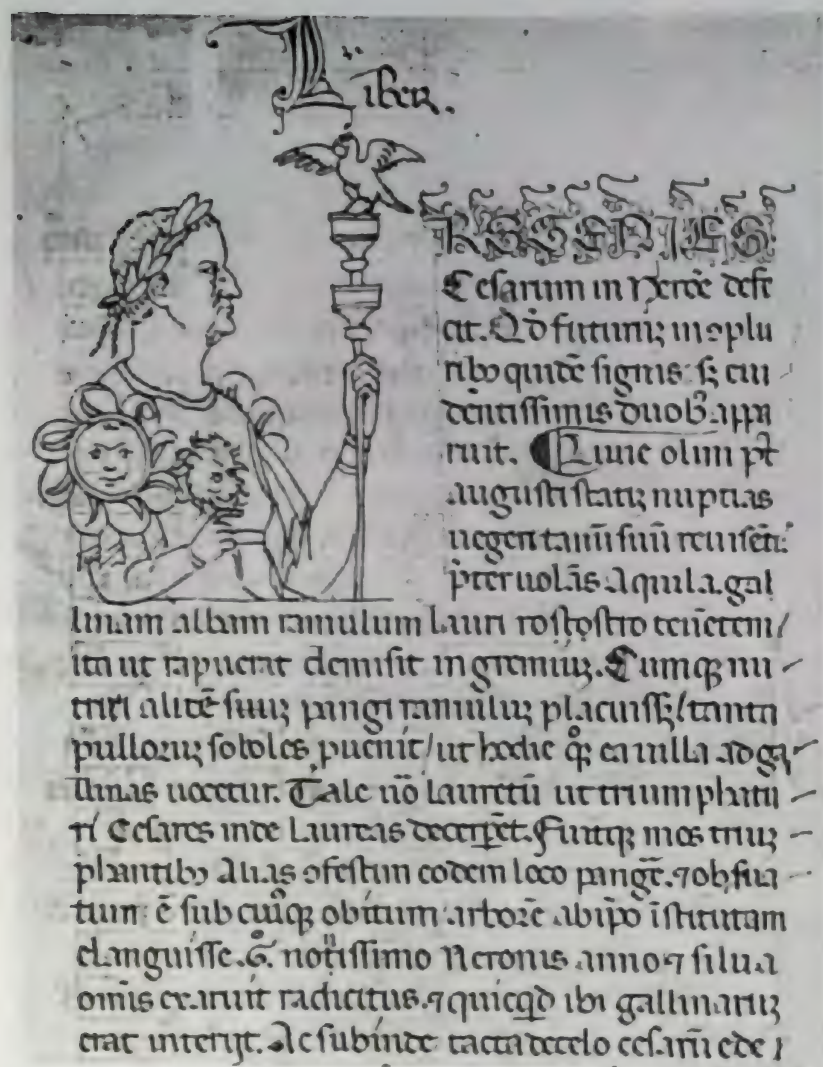 Liber.
ROGENIES
Cesarum in Nerōe defe
cit. Qd̄ futuruꝫ ꝯplu
ribꝰ quidē signis sꝫ eui
dentissimis duobꝰ appa
ruit. Liuie olim pt̄
augusti statiꝫ nuptias
uegentanū suū reuisēti
p̄teruolās Aquila gal
linam albam ramulum lauri rostostro tenentem/
ita ut rapuerat demisit in gremiuꝫ. Cumqꝫ nu
triri alitē suuꝫ pangi ramuluꝫ placuissꝫ/ tanta
pulloruꝫ soboles puenit/ ut hodie qꝫ ea uilla ad ga
llinas uocetur. Tale uō lauretū ut triumphatu
ri Cesares inde laureas decerpet. Fuitqꝫ mos triuꝫ
phantibꝰ Alias ꝯfestim eodem loco pangē. ⁊ obsua
tum ē sub cuiꝰqꝫ obitum arborē ab ipo īstitutam
elanguisse. Gͦ. nouissimo Neronis anno ⁊ silua
omis exaruit radicitus. ⁊ quicqd ibi gallinaruꝫ
erat interijt. Ac subinde tacta de celo cesarū ede